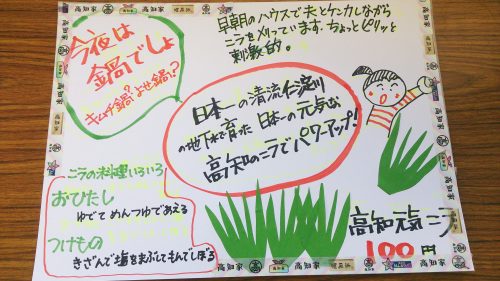 今夜は
鍋でしょ
キムチ鍋？よせ鍋？
早朝のハウスで夫とケンカしながら
ニラを刈っています。ちょっとピリッと
刺激的。
日本一の清流仁淀川
の地下水で育った日本一の元気な
高知のニラでパワーアップ！
ニラの料理いろいろ
おひたし
ゆでてめんつゆであえる
つけもの
きざんで塩をまぶしてもんでしぼる
高知元気ニラ
100円
高知家